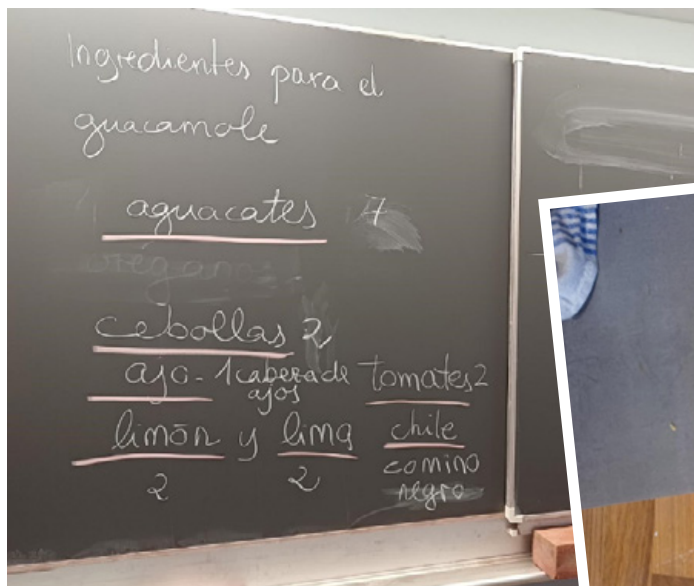 Ingredientes para el
guacamole
aguacates 7
orégano
cebollas 2
ajo - 1 cabeza de ajos
tomates 2
limón y lima
2 2
chile
comino
negro